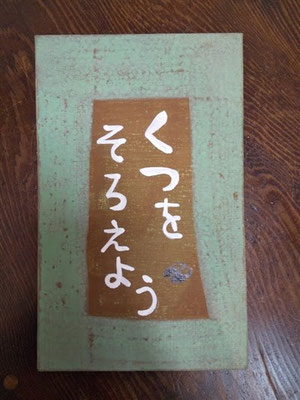 くつを
そろえよう